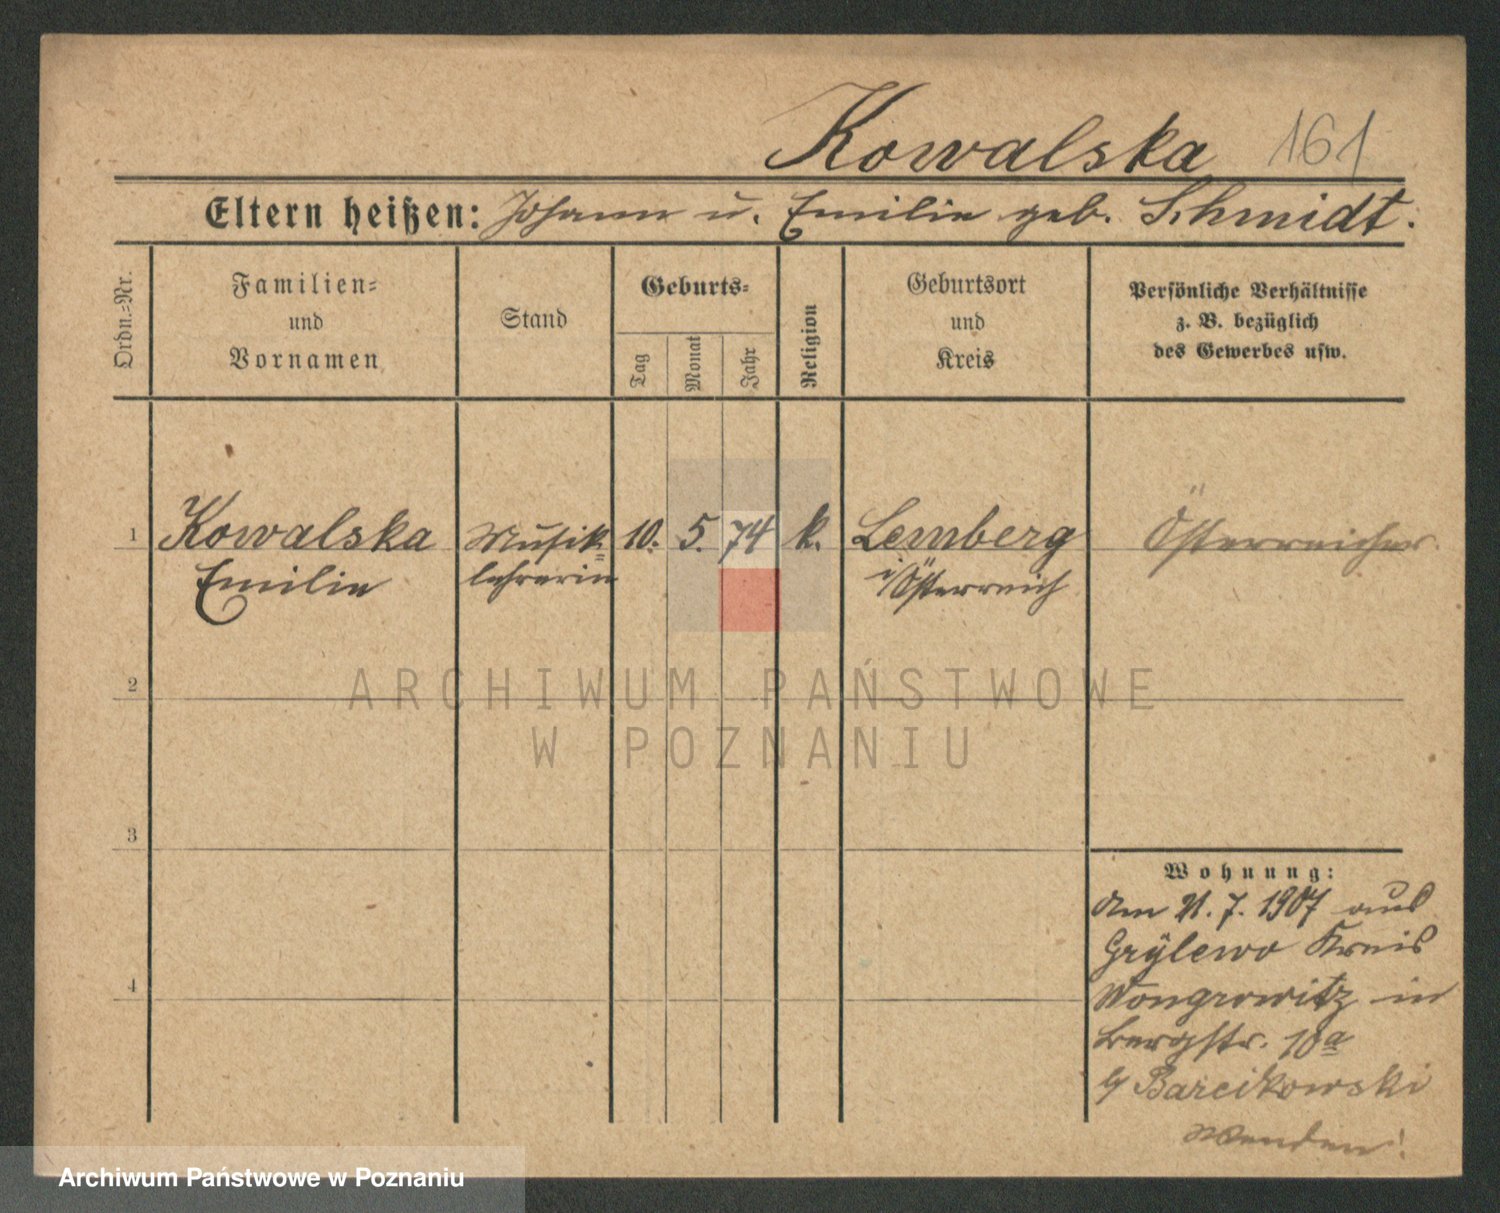 Kowalska 161
Eltern heißen: Johann u. Emilie geb. Schmidt.
Ordn.-Nr.
Familien-
und
Vornamen
Stand
Geburts-
Tag
Monat
Jahr
Religion
Geburtsort
und
Kreis
Persönliche Verhältnisse
z. B. bezüglich
des Gewerbes usw.
1 Kowalska Musik- 10. 5. 74 k. Lemberg Österreicher.
Emilie lehrerin i/Österreich
2
ARCHIWUM PAŃSTWOWE
W POZNANIU
3
Wohnung:
Am 21. 7. 1907 aus
Grylewo Kreis
4
Wongrowitz in
Bergstr. 10a
by Barcikowski
Wenden!
Archiwum Państwowe w Poznaniu